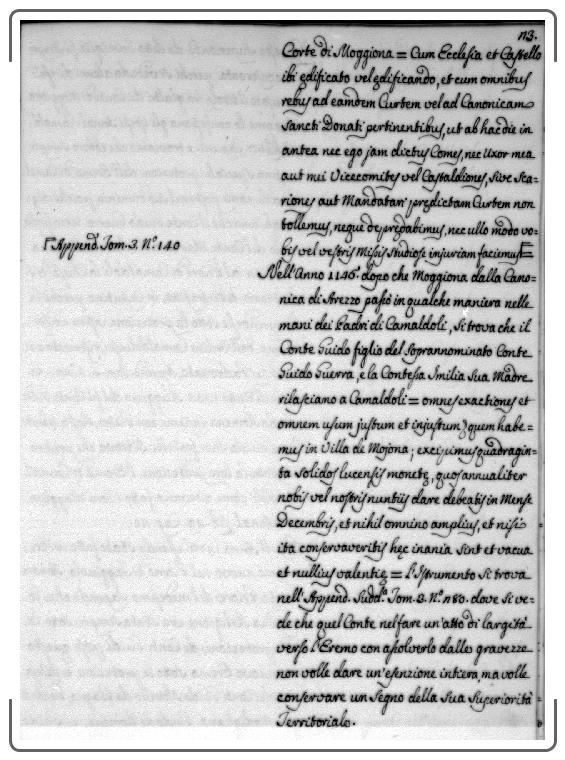 113.
Corte di Moggiona = Cum Ecclesia et Castello
ibi ędificato vel ędificando, et cum omnibus
rebus ad eamdem Curtem vel ad Canonicam
Sancti Donati pertinentibus, ut ab hac die in
antea nec ego jam dictus Comes, nec Uxor mea
aut mei Vicecomites vel Castaldiones, sive Sca=
riones aut Mandatarj prędictam Curtem non
tollemus, neque deprędabimus, nec ullo modo vo=
bis vel vestris Missis studiose injuriam faciemus
Append. Tom. 3. N.º 140
Nell'Anno 1146. dopo che Moggiona dalla Cano=
nica di Arezzo passò in qualche maniera nelle
mani dei Padri di Camaldoli, si trova che il
Conte Guido figlio del soprannominato Conte
Guido Guerra, e la Contessa Imilia sua Madre
rilasciano a Camaldoli = omnes exactiones et
omnem usum justum et injustum quem habe=
mus in Villa de Mojona; excipimus quadragin=
ta solidos lucensis monetę, quos annualiter
nobis vel nostris nuntiis dare debeatis in Mense
Decembris, et nihil omnino amplius, et nisi
ita conservaveritis hęc inania sint et vacua
et nullius valentię = l'Istrumento si trova
nell'Append. Sudd.ª Tom. 3. N.º 180. dove si ve=
de che quel Conte nel fare un'atto di largità
verso l'Eremo con assolverlo dalle gravezze
non volle dare un'esenzione intiera, ma volle
conservare un segno della sua Superiorità
Territoriale.